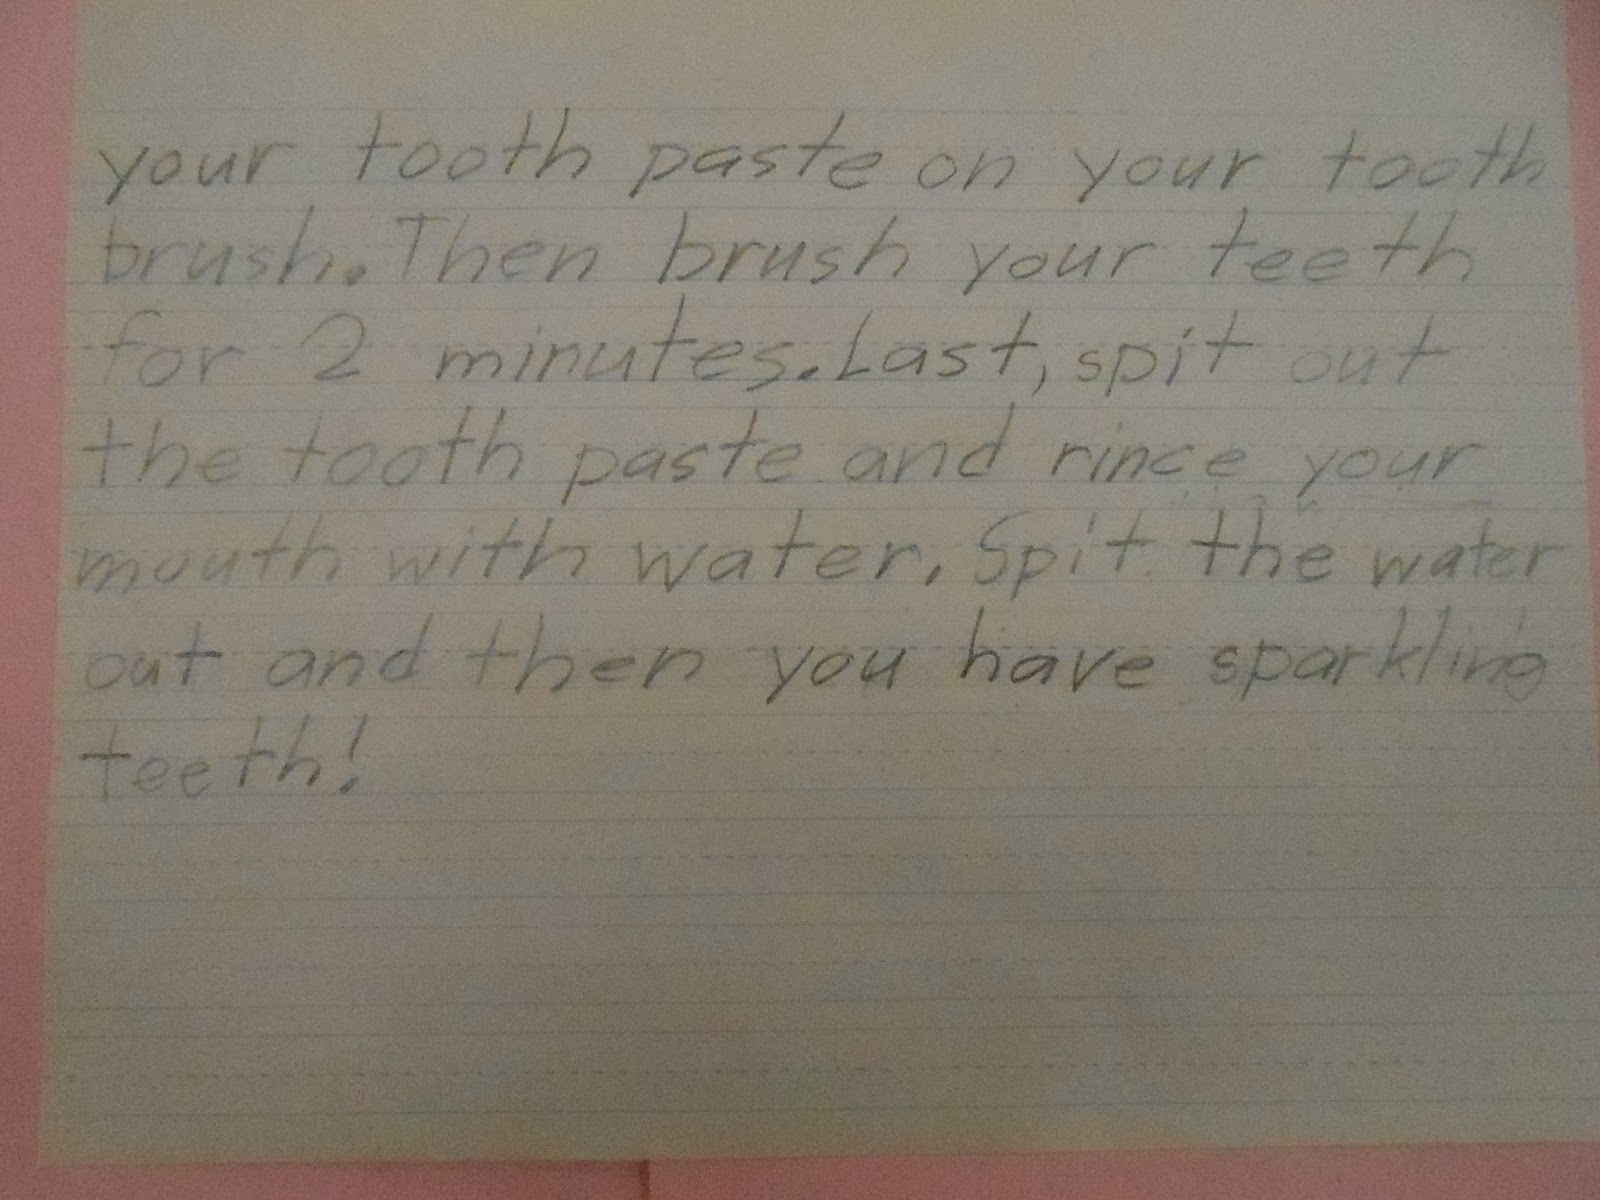 your tooth paste on your tooth
brush. Then brush your teeth
for 2 minutes. Last, spit out
the tooth paste and rince your
mouth with water. Spit the water
out and then you have sparkling
teeth!